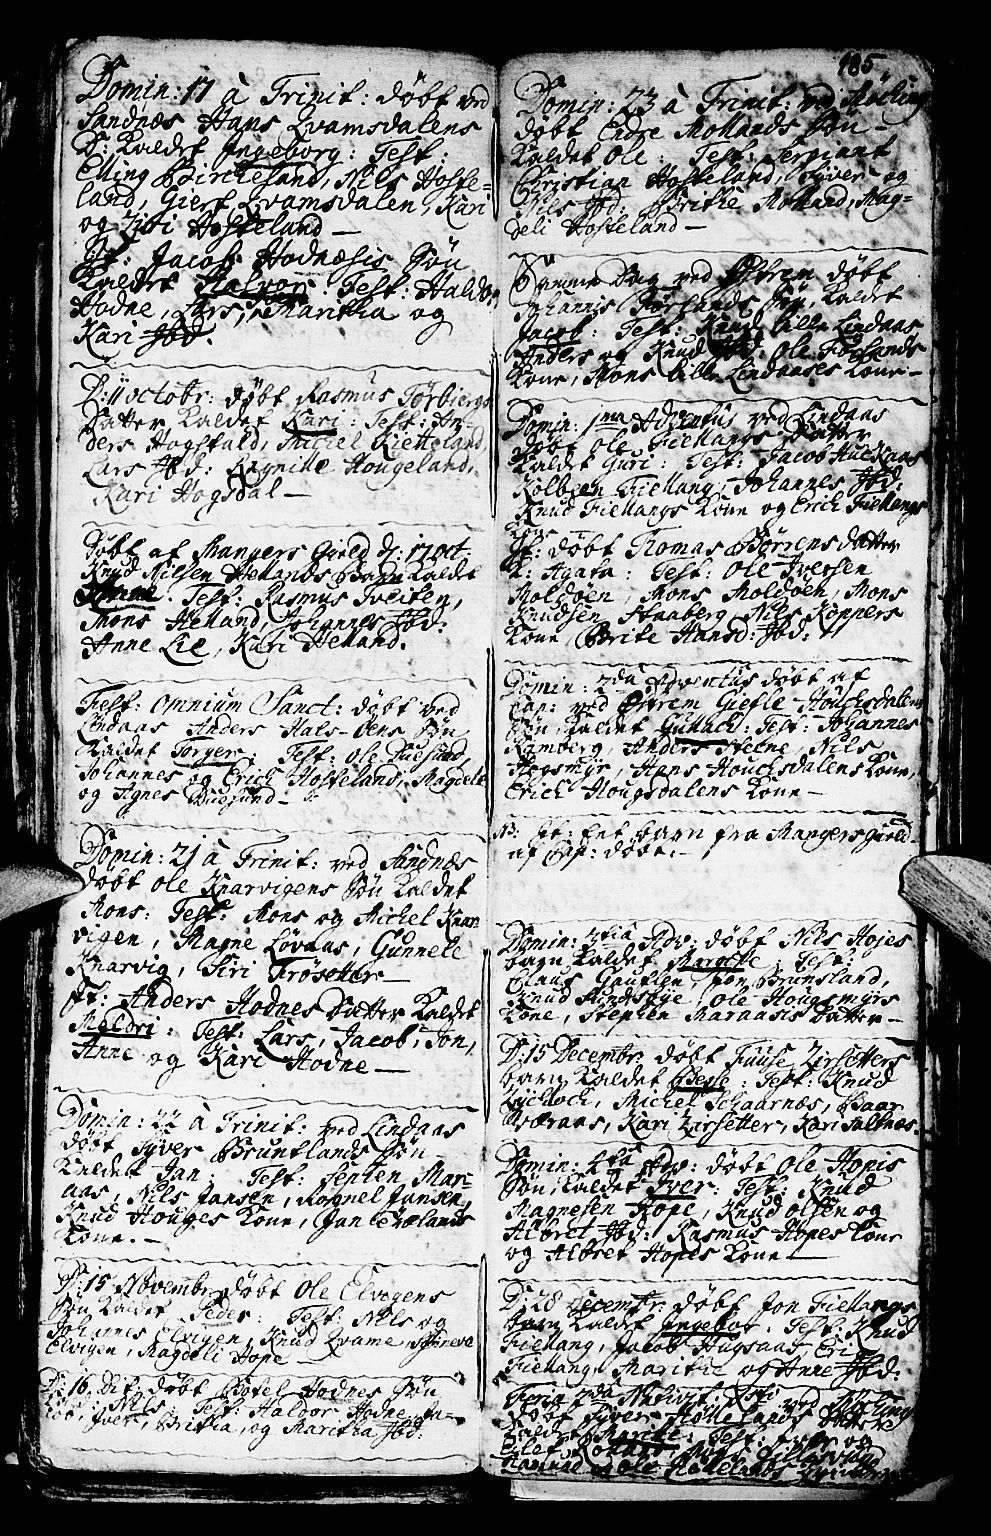 Domin: 17 à Trinit: döbt ved
Sandnæs Hans Qvamsdalens
B: Kaldet Ingeborg: Test:
Elling Birchesand, Nils Hoste=
land, Giert Qvamsdalen, Kari
og Siri Hosteland —
It: Jacob Hodnæsis Søn
Kaldet Halvor. Test: Haldor
Hodne, Lars, Maritha og
Kari Ibd.
D: 11 Octobr: döbt Rasmus Torbiergs
Datter Kaldet Kari: Test: An-
ders Hogstald, Michel Kietteland,
Lars Ibd: Ragnilde Hougeland,
Kari Hogsdal —
Döbt af Mangers Gield d: 17 Oct:
Knud Nilsen Hellands Barn Kaldet
Test: Rasmus Tveiten,
Mons Helland, Johannes Ibd:
Anne Lie, Kari Helland.
Fest: Omnium Sanct: döbt ved
Lindaas Anders Hals-bens Søn
Kaldet Torger: Test: Ole Duesund,
Johannes og Erich Hosteland, Magdele
og Agnes Duesund —
Domin: 21 à Trinit: ved Sandnæs
döbt Ole Knarvigens Søn Kaldet
Mons: Test: Mons og Michel Knar-
vigen, Magne Løvaas, Gunnele
Knarvig, Siri Frösetter —
It: Anders Hodnes Datter Kaldet
Maldori: Test: Lars, Jacob, Jon,
Anne og Kari Hodne —
Domin: 22 à Trinit: ved Lindaas
döbt Syver Bruntlands Søn
Kaldet Jan. Test: Mar-
aas, Nils Jansen, Rognel Jansen,
Knud Houges Kone, Jan
Kone. —
D: 15 Novembr: döbt Ole Elvegens
Søn Kaldet Peder: Test: Nils og
Johannis Elvigen, Knud Qvame,
Elvigen, Magdeli Hope —
D: 16 Dit: döbt Botel Hodnes Søn
Nils: Test: Haldor Hodne, Ja-
cob, Iver, Britha, og Maritha Ibd:
185
Domin: 23 à Trinit: ved
döbt Endre Mollands Søn —
Kaldet Ole: Test: Serjiant
Christian Hosteland, Syver og
Nils Ibd: Brithe Molland, Mag=
deli Hosteland —
Samme Dag ved Østrem döbt
Johannis Førlands Søn, Kaldet
Jacob: Test: Knud lille Lindaas
Anders og Knud Ibd: Ole Førlands
Kone, Mons lille Lindaases Kone —
Domin: 1ma Adventus ved Lindaas
döbt Ole Fiellangs Datter
Kaldet Guri: Test: Jacob
Kolbeen Fiellang, Johannes Ibd:
Knud Fiellangs Kone og Erich Fiellangs
Kone
It: döbt Thomas Børiens datter
K: Agata: Test: Ole Iversen
Moldøen, Mons Moldøen, Mons
Knudsen Skaaberg, Nils Koppers
Kone Brite Hansd: Ibd:
Domin: 2da Adventus döbt af
Cap: ved Østrem Giefle Houchsdalens
Søn, Kaldet Gullach: Test: Johannes
Ramberg, Anders Steene, Nils
Hegsmyr, Hans Houchsdalens Kone,
Erich Hougsdalens Kone —
N3: It: Eet barn fra Mangers gield
af Cap: döbt. —
Domin: 3tia Adv: döbt Nils Hojes
barn Kaldet Margete: Test:
Claus Gautun, Jon Brunsland,
Knud Ole Hougsmyrs
Kone, Stephen Maraasis Datter —
D: 15 Decembr: döbt Fuuse Zirsetters
barn Kaldet Berge: Test: Knud
Michel Schaarnæs, Baar
Kari Zirsetter, Kari Saltnæs. —
Domin: 4ta Adv: döbt Ole Hopis
Søn, Kaldet Iver: Test: Knud
Magnesen Hope, Knud Olsen og
Albret Ibd: Rasmus Hopes Kone
og Albret Hopes Kone —
D: 28 Decembr: döbt Jon Fiellangs
barn Kaldet Ingebor Test: Knud
Fiellang, Jacob Hugsaas, Eric
Fiellang, Marithe og Anne Ibd:
Feria 2da Nativit: Xsti ved
döbt Syver Hollelands Datter
Kaldet Marite: Test: